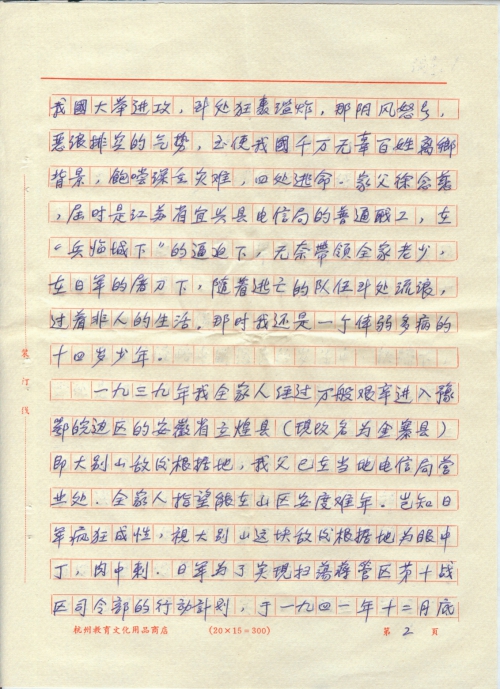 我國大举进攻，到处狂轰滥炸，那阴风怒号，
恶浪排空的气势，至使我國千万无辜百姓离鄉
背景，飽嚐深重灾难，四处逃命．家父徐念
，届时是江苏省宜兴县电信局的普通职工，在
“兵临城下”的逼迫下，无奈带领全家老少，
在日军的屠刀下，随着逃亡的队伍到处流浪，
过着非人的生活，那时我还是一个体弱多病的
十四岁少年．
一九三九年我全家人经过万般艰辛进入豫
鄂皖边区的安徽省立煌县（现改名为金寨县）
即大别山敌後根据地，我父已在当地电信局营
业处．全家人指望能在山区安度难年．岂知日
军疯狂成性，视大别山这块敌後根据地为眼中
丁，肉中刺．日军为了实现扫荡蒋管区第十战
区司令部的行动計划，于一九四一年十二月底
装 订 线
杭州教育文化用品商店 (20×15=300) 第 2 页